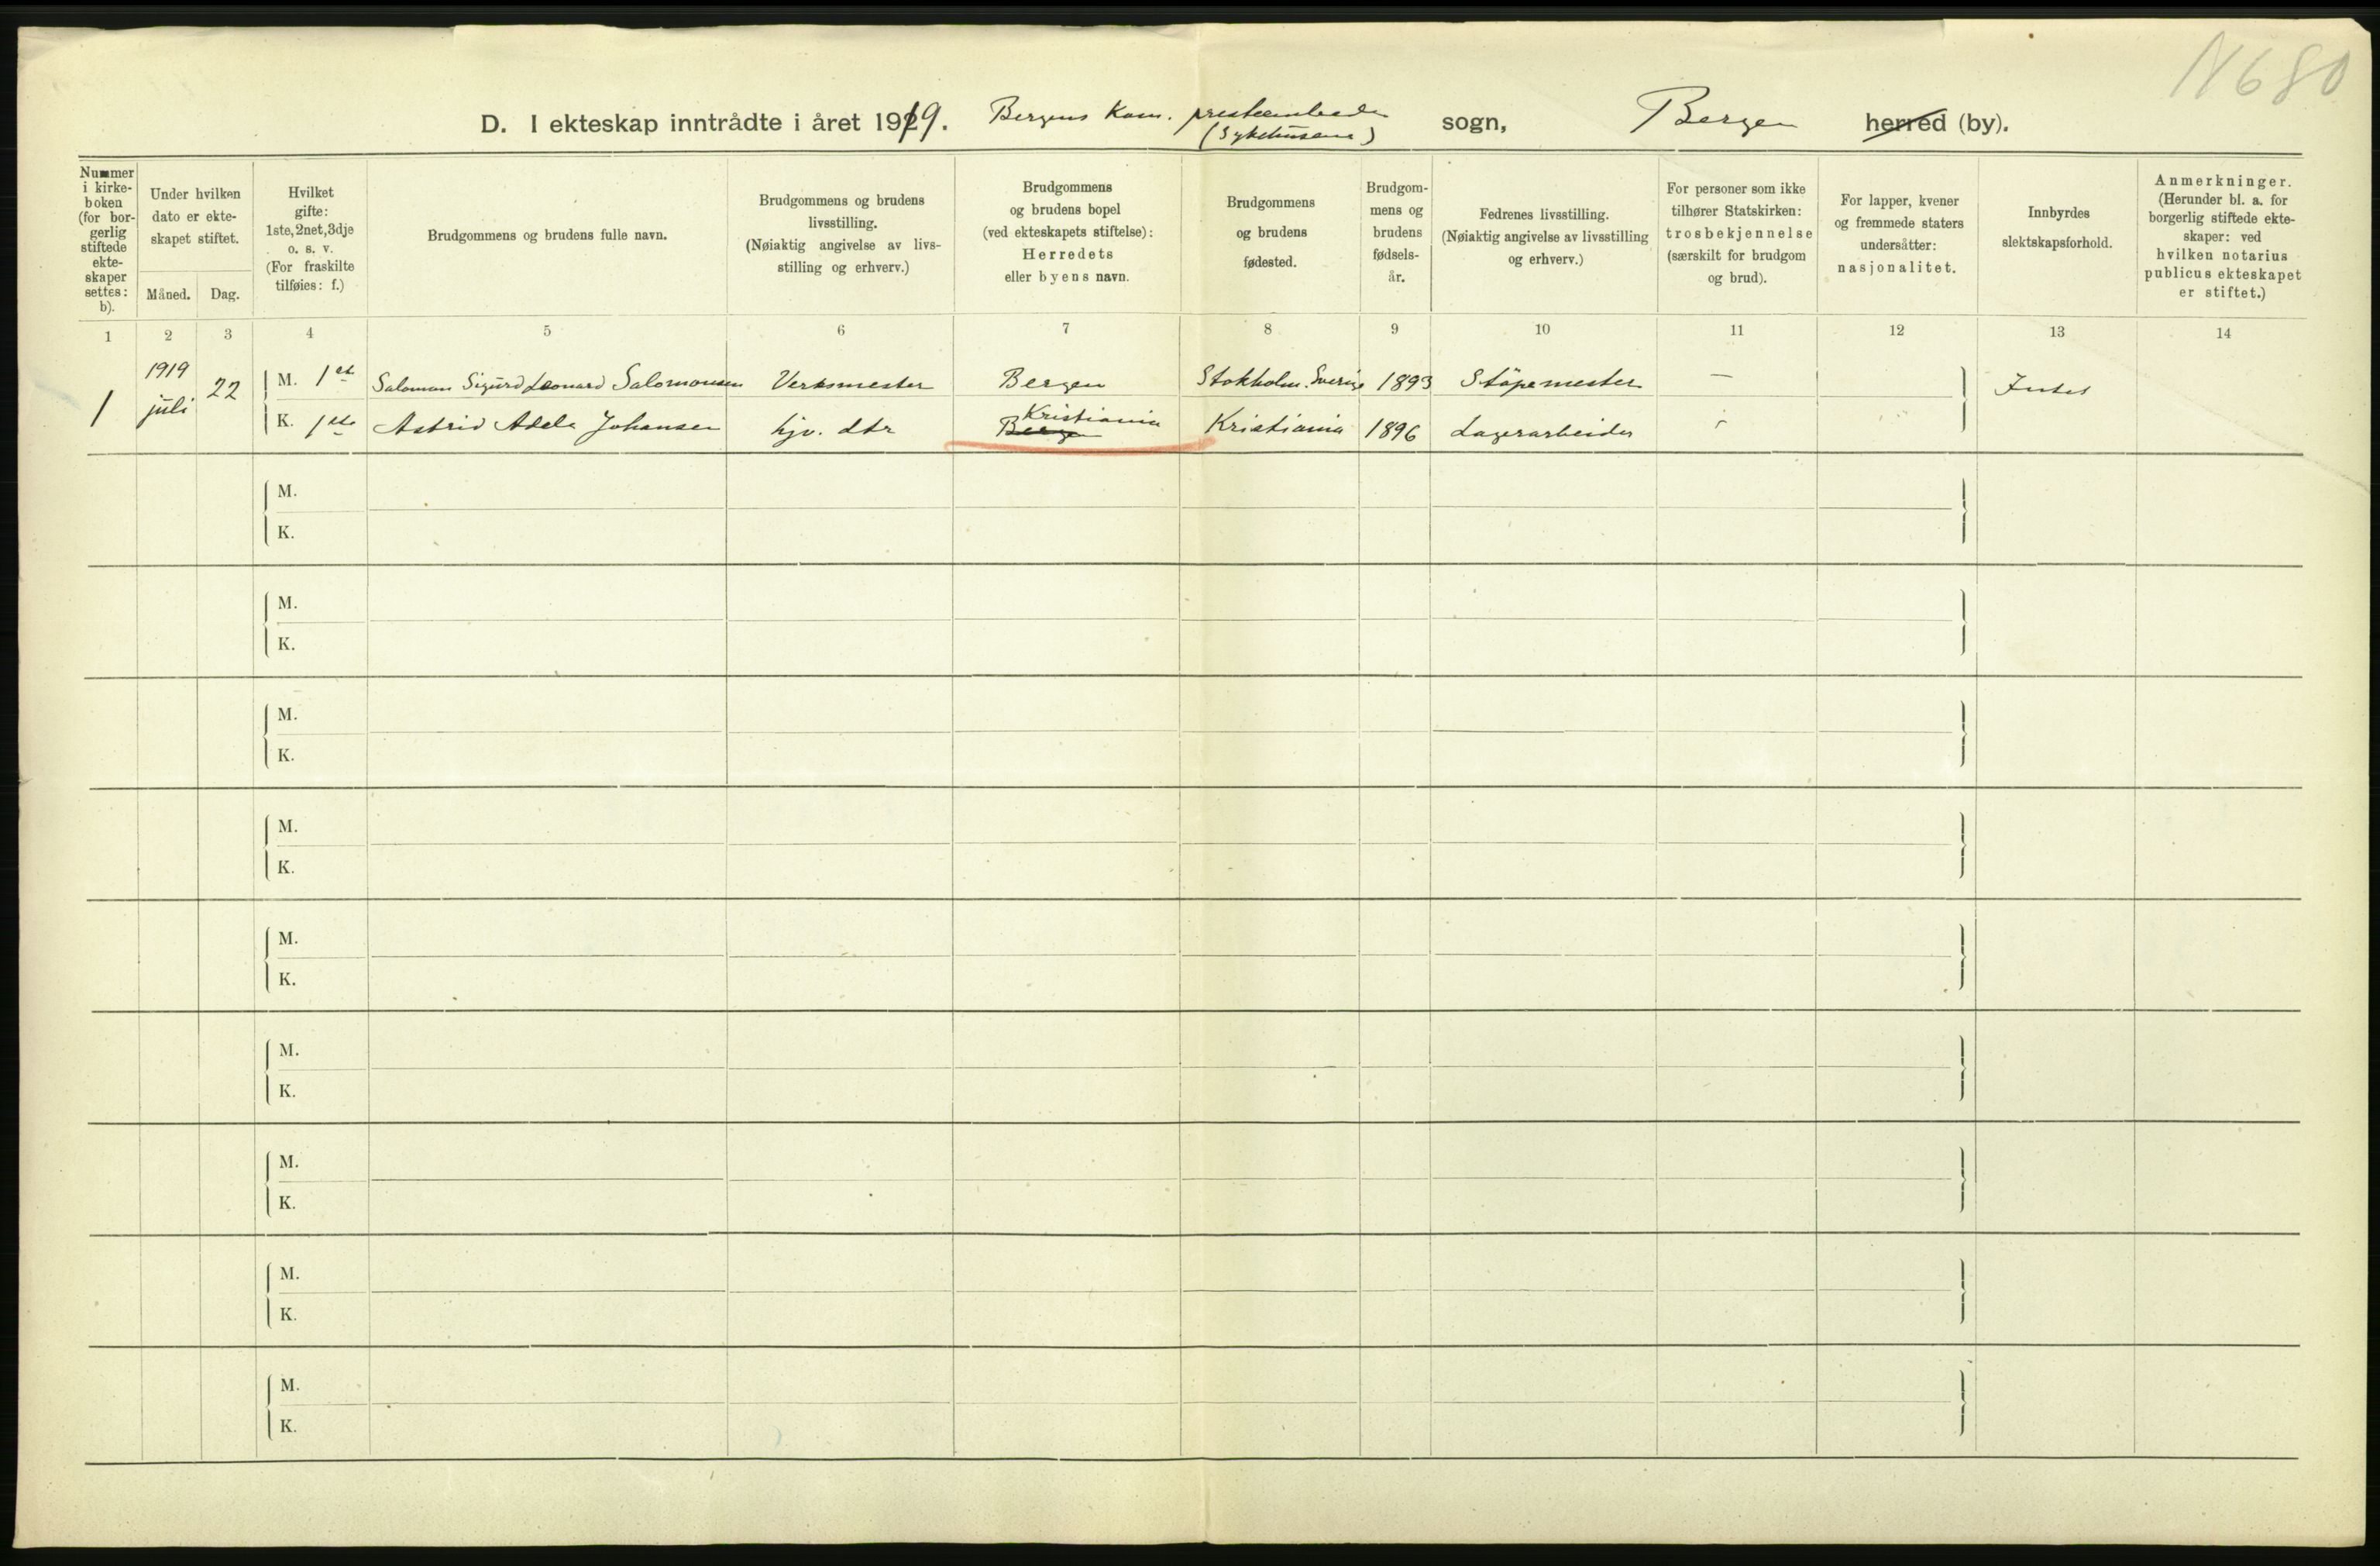 N680
D. I ekteskap inntrådte i året 1919. Bergens Kom. presteembede (Sykehusene) sogn, Bergen herred (by).
Nummer i kirkeboken (for borgerlig stiftede ekteskaper settes: b).
Under hvilken dato er ekteskapet stiftet.
Måned. Dag.
Hvilket gifte: 1ste, 2net, 3dje o. s. v. (For fraskilte tilføies: f.)
Brudgommens og brudens fulle navn.
Brudgommens og brudens livsstilling. (Nøiaktig angivelse av livsstilling og erhverv.)
Brudgommens og brudens bopel (ved ekteskapets stiftelse): Herredets eller byens navn.
Brudgommens og brudens fødested.
Brudgommens og brudens fødselsår.
Fedrenes livsstilling. (Nøiaktig angivelse av livsstilling og erhverv.)
For personer som ikke tilhører Statskirken: trosbekjennelse (særskilt for brudgom og brud).
For lapper, kvener og fremmede staters undersåtter: nasjonalitet.
Innbyrdes slektskapsforhold.
Anmerkninger. (Herunder bl. a. for borgerlig stiftede ekteskaper: ved hvilken notarius publicus ekteskapet er stiftet.)
1 2 3 4 5 6 7 8 9 10 11 12 13 14
1 1919 juli 22
M. 1ste Salomon Sigurd Leonard Salomonsen Verksmester Bergen Stokholm. Sverige 1893 Stöpemester — Intet
K. 1ste Astrid Adele Johansen hjv. dtr Bergen Kristiania Kristiania 1896 Lagerarbeider
M.
K.
M.
K.
M.
K.
M.
K.
M.
K.
M.
K.
M.
K.
M.
K.
M.
K.